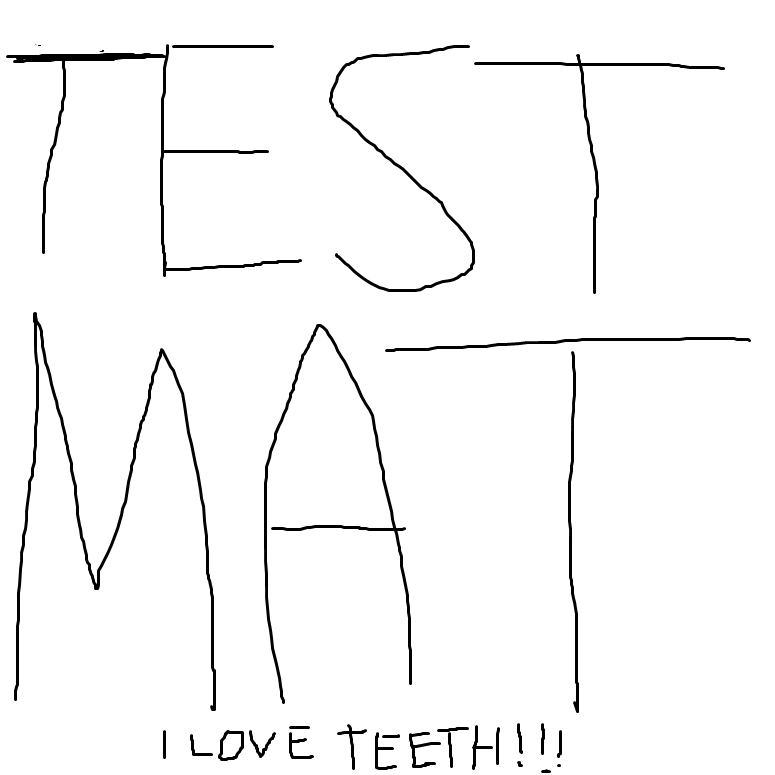 TEST
MAT
I LOVE TEETH!!!